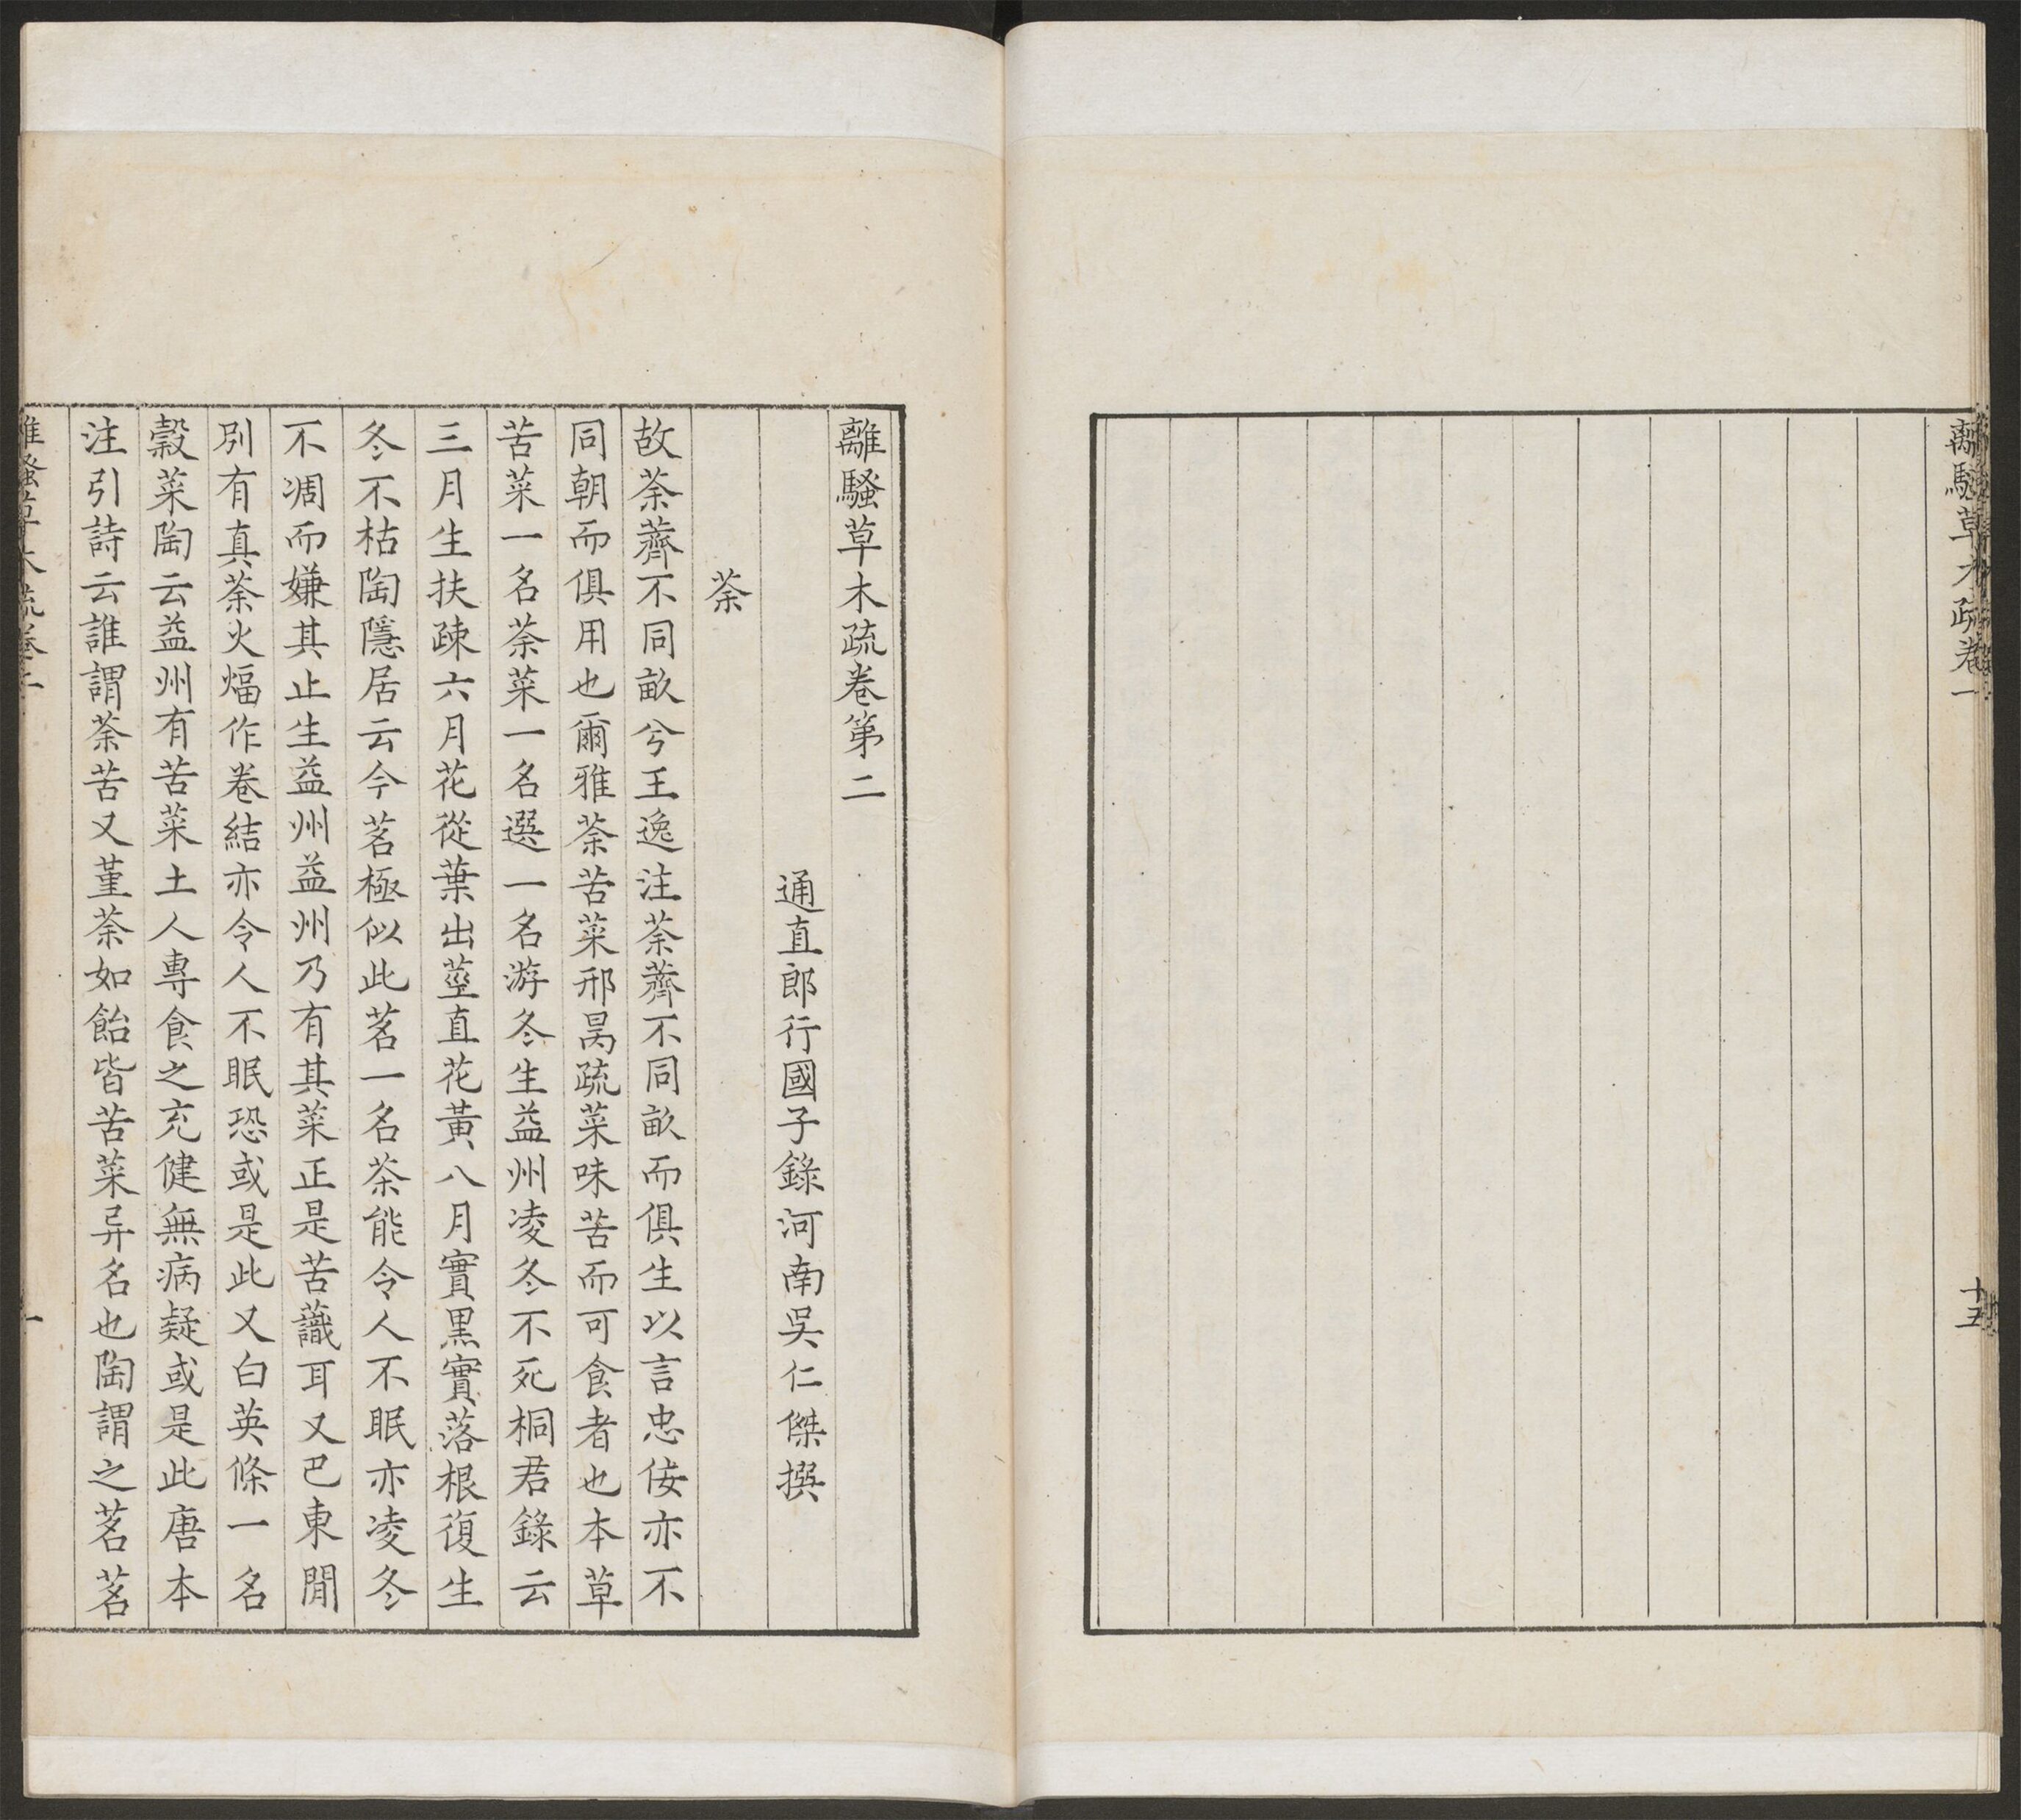 離騷草木疏卷一
十五
離騷草木疏卷第二
通直郎行國子錄河南吳仁傑撰
荼
故荼薺不同畝兮王逸注荼薺不同畝而俱生以言忠佞亦不
同朝而俱用也爾雅荼苦菜邢昺疏菜味苦而可食者也本草
苦菜一名荼菜一名選一名游冬生益州凌冬不死桐君錄云
三月生扶疎六月花從葉出莖直花黃八月實黑實落根復生
冬不枯陶隱居云今茗極似此茗一名茶能令人不眠亦凌冬
不凋而嫌其止生益州益州乃有其菜正是苦蘵耳又巴東閒
別有真荼火煏作卷結亦令人不眠恐或是此又白英條一名
穀菜陶云益州有苦菜土人專食之充健無病疑或是此唐本
注引詩云誰謂荼苦又堇荼如飴皆苦菜异名也陶謂之茗茗
離騷草木疏卷二
一